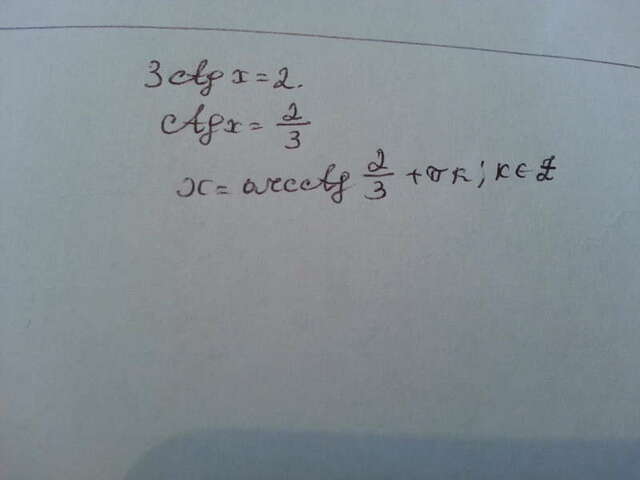 3 ctg x = 2.
ctg x = 2/3
x = arcctg 2/3 + πк; к ∈ Z